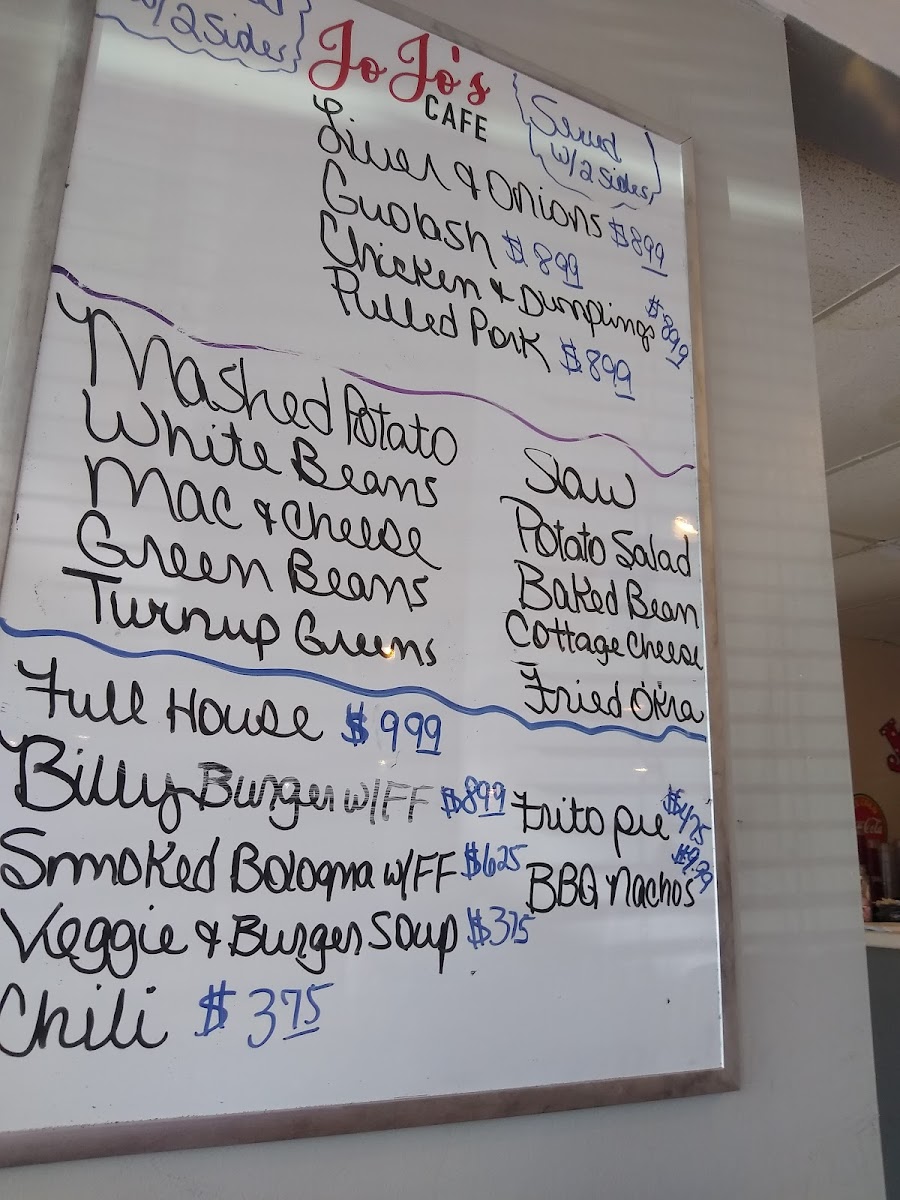 w/2 Sides
JoJo's
CAFE
Served
w/2 sides
Liver & Onions $8.99
Guolash $8.99
Chicken & Dumplings $8.99
Pulled Pork $8.99
Mashed Potato
White Beans
Mac & Cheese
Green Beans
Turnup Greens
Slaw
Potato Salad
Baked Bean
Cottage Cheese
Fried Okra
Full House $9.99
Billy Burger w/FF $8.99
Smoked Bologna w/FF $6.25
Veggie & Burger Soup $3.75
Chili $3.75
Frito pie $4.75
BBQ Nachos $9.99